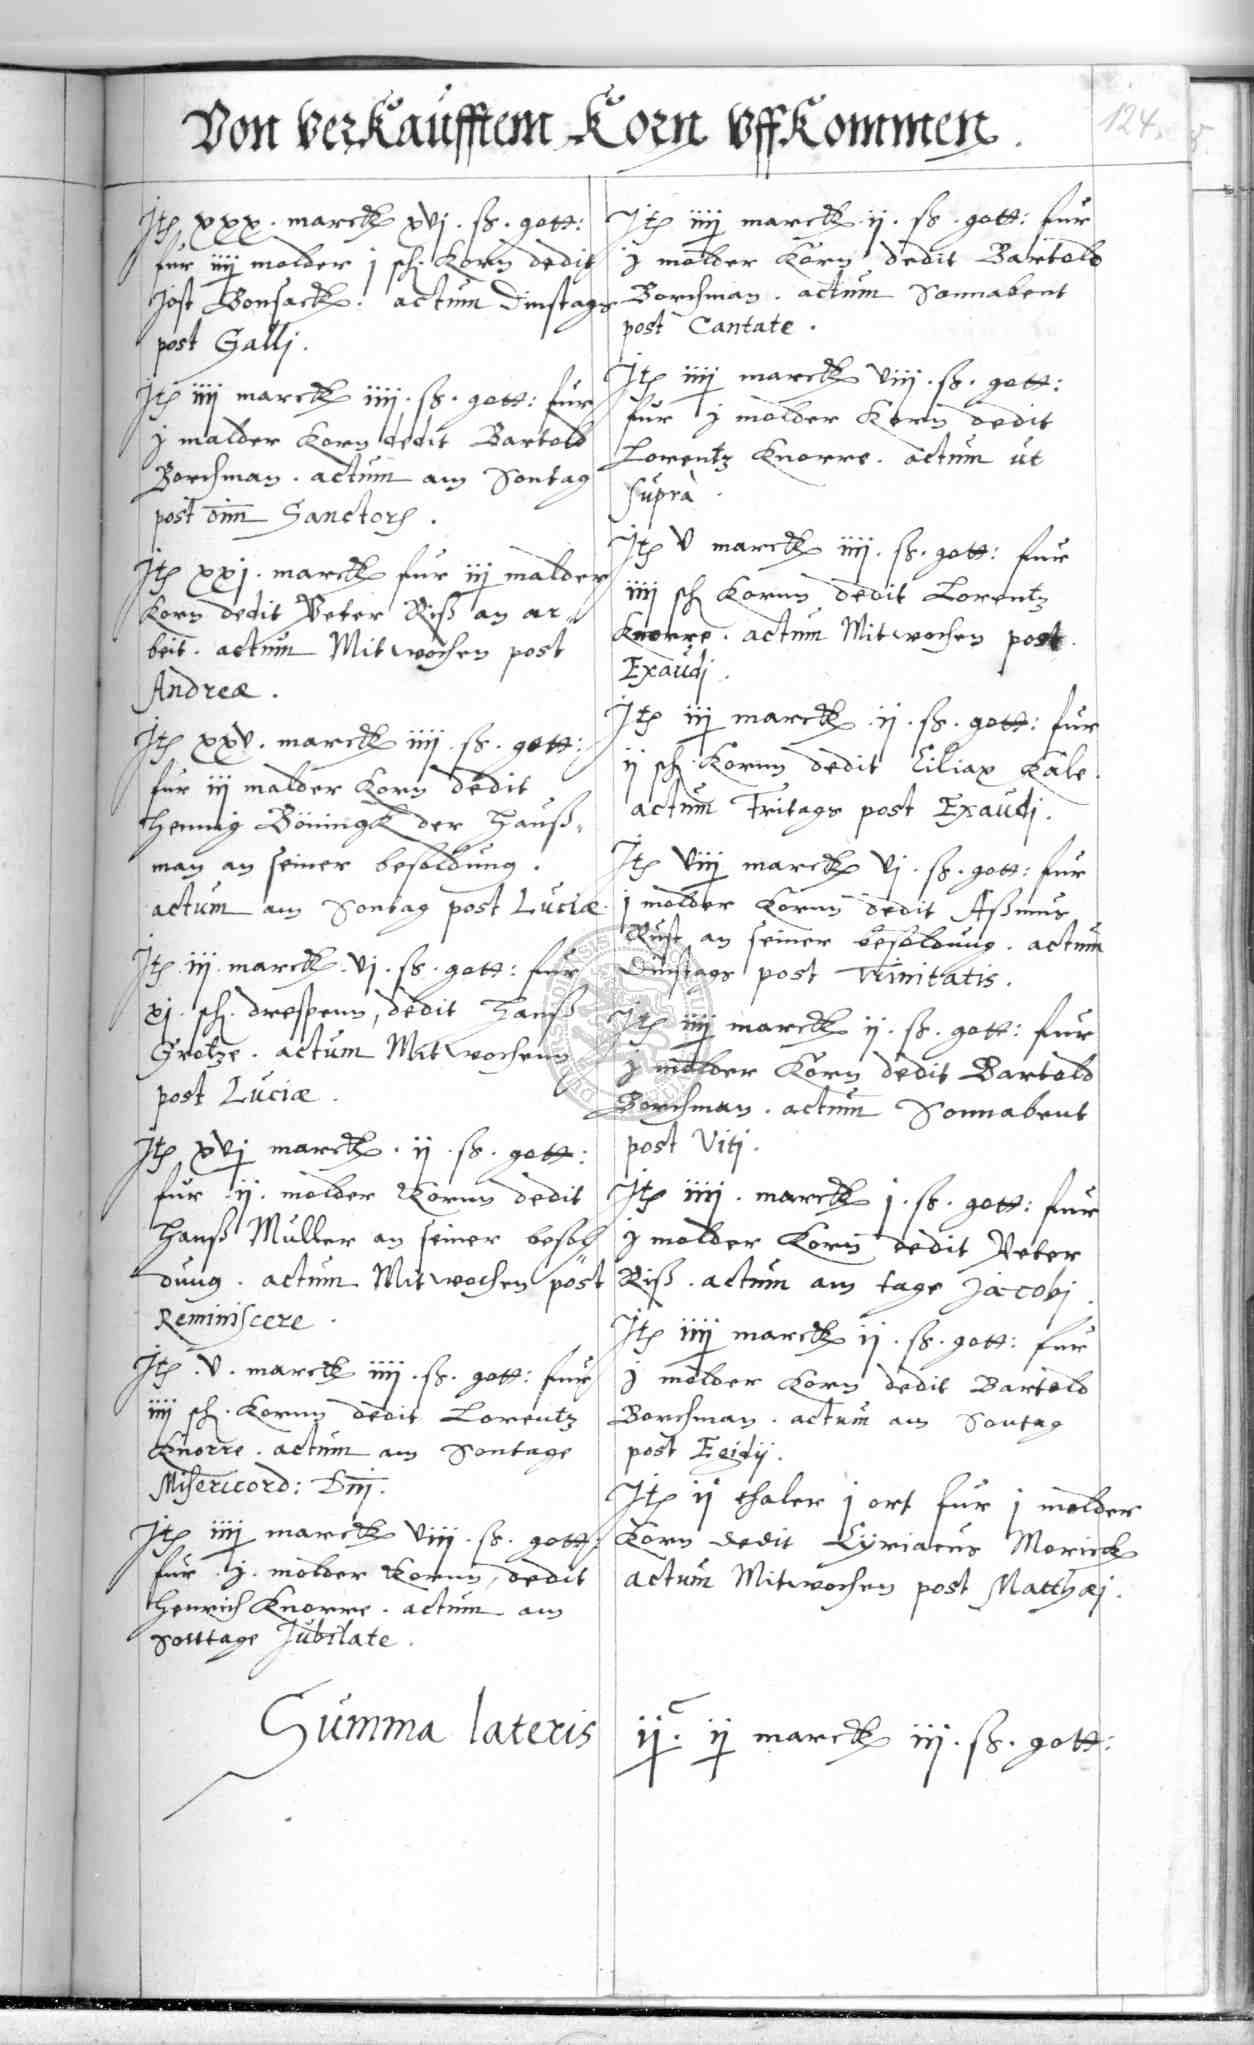 Von verkaufftem Korn uffkommen.
124.
Itē xxx. marckℓ xvj. ß. gott:
fur iiij molder j sch. Korn dedit
Jost Bonsack. actum Dinstags
post Gallj.
Itē iiij marckℓ iiij. ß. gott: fur
j malder Korn dedit Bartold
Borchman. actum am Sontag
post oīm Sanctorū.
Itē xxj. marckℓ fur iij malder
Korn dedit Peter Riß an ar
beit. actum Mitwochen post
Andreæ.
Itē xxv. marckℓ iiij. ß. gott:
fur iij malder Korn dedit
Hennig Böningk der Hauß-
man an seiner besoldung.
actum am Sontag post Luciæ.
Itē iij. marckℓ. vj. ß. gott: fur
xj. sch. drespenn, dedit Hanß
Grotze. actum Mitwochenn
post Luciæ.
Itē xvj marckℓ. ij. ß. gott:
fur ij. molder Kornn dedit
Hanß Muller an seiner besol
dung. actum Mitwochen post
Reminiscere.
Itē. v. marckℓ iiij. ß. gott: fur
iiij sch. Kornn dedit Lorentz
Knorre. actum am Sontage
Misericord: Dnj.
Itē iiij marckℓ viij. ß. gott:
fur j. molder Kornn, dedit
Henrich Knorre. actum am
Sonttage Jubilate.
Itē iiij marckℓ ij. ß. gott: fur
j molder Korn dedit Bartold
Borchman. actum Sonnabent
post Cantate.
Itē iiij marckℓ viij. ß. gott:
fur j molder Korn dedit
Lorentz Knorre. actum ut
supra.
Itē v marckℓ iiij. ß. gott: fur
iiij sch Kornn dedit Lorentz
Knorre. actum Mitwochen post.
Exaudj.
Itē iij marckℓ ij. ß. gott: fur
ij sch. Kornn dedit Ciliax Kale.
actum Fritags post Exaudj.
Itē viij marckℓ vj. ß. gott: fur
j molder Kornn dedit Aßmus
Rust an seiner besoldung. actum
Dinstags post Trinitatis.
Itē iiij marckℓ ij. ß. gott: fur
j molder Korn dedit Bartold
Borchman. actum Sonnabent
post Vitj.
Itē iiij. marckℓ j. ß. gott: fur
j molder Korn dedit Peter
Riß. actum am tage Jacobj.
Itē iiij marckℓ ij. ß. gott: fur
j molder Korn dedit Bartold
Borchman. actum am Sontag
post Egidij.
Itē ij thaler j ort fur j molder
Korn dedit Cyriacus Morick
actum Mitwochen post Matthæj.
Summa lateris ijᶜ. ij marckℓ iij. ß. gott: